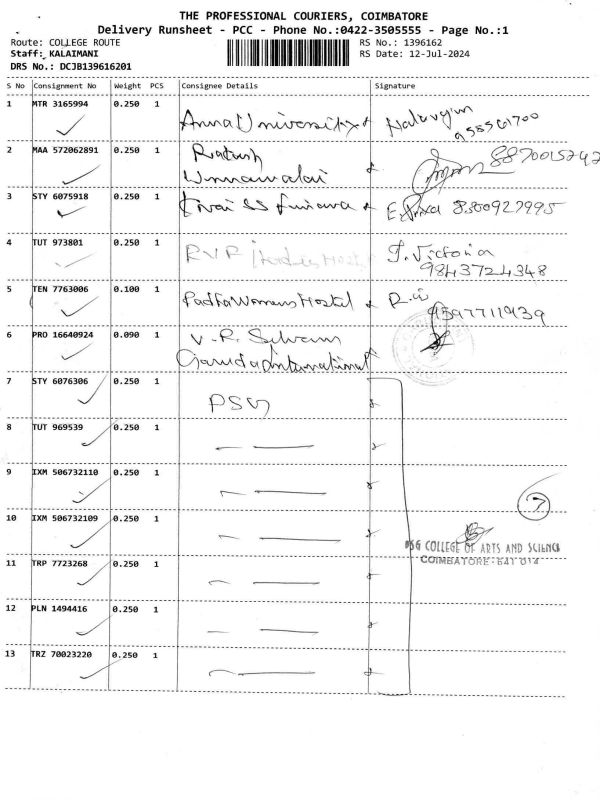 THE PROFESSIONAL COURIERS, COIMBATORE
Delivery Runsheet - PCC - Phone No.:0422-3505555 - Page No.:1
Route: COLLEGE ROUTE RS No.: 1396162
Staff: KALAIMANI RS Date: 12-Jul-2024
DRS No.: DCJB139616201
S No Consignment No Weight PCS Consignee Details Signature
1 MTR 3165994 0.250 1
Anna University
2 MAA 572062891 0.250 1
3 STY 6075918 0.250 1
4 TUT 973801 0.250 1 J. Victoria
9843724348
5 TEN 7763006 0.100 1
Padha Womens Hostel
6 PRO 16640924 0.090 1 V.R. Selvam
Garuda International
7 STY 6076306 0.250 1
PSG
8 TUT 969539 0.250 1
9 IXM 506732110 0.250 1
7
10 IXM 506732109 0.250 1
PSG COLLEGE OF ARTS AND SCIENCE
COIMBATORE - 641 014
11 TRP 7723268 0.250 1
12 PLN 1494416 0.250 1
13 TRZ 70023220 0.250 1